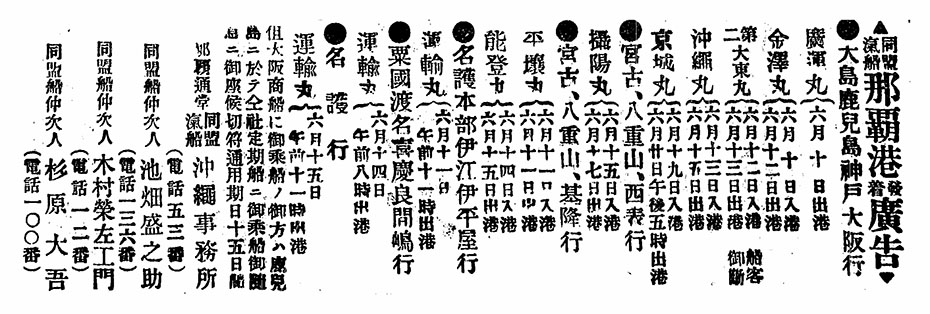 ▲同盟汽船那覇港発着廣告▼
●大島鹿兒島神戸大阪行
廣運丸{六月十日出港
金澤丸{六月十日入港 六月十二日出港
第二大東丸{六月十二日入港 六月十三日出港 船客御断
沖繩丸{六月十三日入港 六月十五日出港
京城丸{六月十九日入港 六月廿日午後五時出港
●宮古、八重山、西表行
攝陽丸{六月十五日入港 六月十七日出港
●宮古、八重山、基隆行
平壤丸{六月十一日入港 六月十一日出港
能登丸{六月十四日入港 六月十五日出港
●名護本部伊江伊平屋行
運輸丸{六月十一日 午前十一時出港
●粟國渡名喜慶良間嶋行
運輸丸{六月十四日 午前八時出港
●名護行
運輸丸{六月十五日 午前十一時出港
但大阪商船に御乗船ノ御方ハ鹿兒
島ニ於テ仝社定期船ニ御乗船御隨
意ニ御座候切符通用期日十五日間
那覇通堂 同盟汽船 沖繩事務所
(電話五三番)
同盟船仲次人 池畑盛之助
(電話一三六番)
同盟船仲次人 木村榮左工門
(電話一二番)
同盟船仲次人 杉原大吾
(電話一〇〇番)